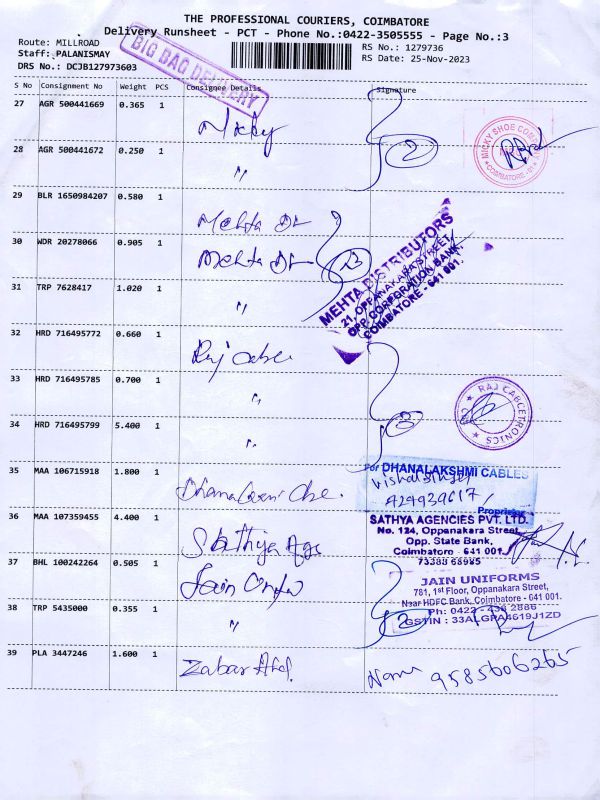 THE PROFESSIONAL COURIERS, COIMBATORE
Delivery Runsheet - PCT - Phone No.:0422-3505555 - Page No.:3
Route: MILLROAD
RS No.: 1279736
Staff: PALANISMAY
RS Date: 25-Nov-2023
DRS No.: DCJB127973603
BIG BAG DELIVERY
S No Consignment No Weight PCS Consignee Details Signature
27 AGR 500441669 0.365 1 Micky
28 AGR 500441672 0.250 1 〃 2
MICKY SHOE COMPANY
COIMBATORE
29 BLR 1650984207 0.580 1 Mehta Dr
30 WDR 20278066 0.905 1 Mehta Dr 3
31 TRP 7628417 1.020 1 〃
MEHTA DISTRIBUTORS
21, OPPANAKARA STREET,
OPP. CORPORATION BANK,
COIMBATORE - 641 001.
32 HRD 716495772 0.660 1 Raj
33 HRD 716495785 0.700 1 〃
34 HRD 716495799 5.400 1 〃 3
RAJ CABCETRONICS
35 MAA 106715918 1.800 1
For DHANALAKSHMI CABLES
Proprietor
36 MAA 107359455 4.400 1 Sathya Ags
SATHYA AGENCIES PVT. LTD.
No. 124, Oppanakara Street,
Opp. State Bank,
Coimbatore - 641 001.
73388 68985
37 BHL 100242264 0.505 1 Jain
38 TRP 5435000 0.355 1 〃 2
JAIN UNIFORMS
781, 1st Floor, Oppanakara Street,
Near HDFC Bank, Coimbatore - 641 001.
Ph: 0422 - 436 2886
GSTIN : 33ALGPA4619J1ZD
39 PLA 3447246 1.600 1 Zabar 9585606265